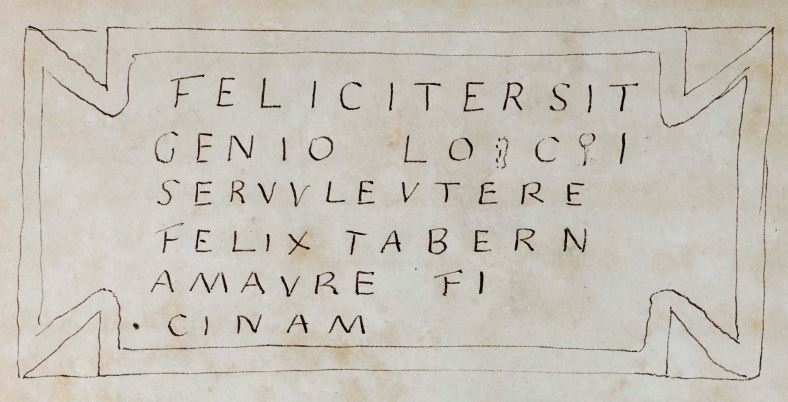 FELICITERSIT
GENIO LOCI
SERVVLEVTERE
FELIX TABERN
AMAVRE FI
CINAM